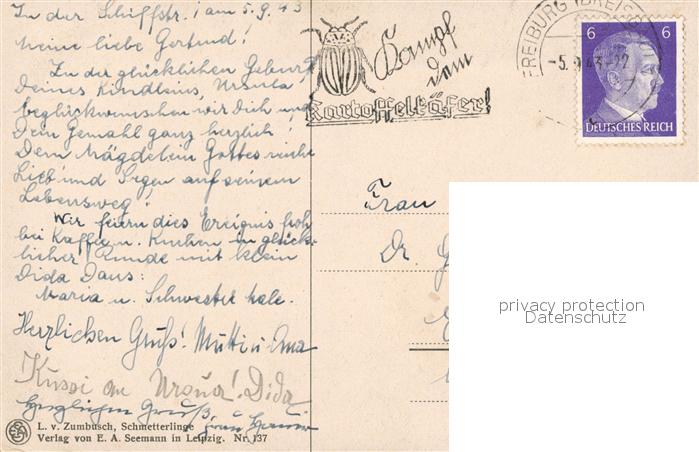 In der Schiffstr.! am 5.9.43
Meine liebe Gertrud!
Zu der glücklichen Geburt
Deines Kindleins, Ursula
beglückwünschen wir Dich und
Dein Gemahl ganz herzlich!
Dem Mägdelein Gottes reiche
Lieb und Segen auf seinem
Lebensweg!
Wir feiern dies Ereignis froh
bei Kaffee u. Kuchen in glück-
licher Runde mit klein
Dida Daus:
Maria u. Schwester
Herzlichen Gruß! Mutti u. Oma
Kussi an Ursula! Dida
Herzlichen Gruß,
L. v. Zumbusch, Schmetterlinge
Verlag von E. A. Seemann in Leipzig. Nr. 137
Kampf
dem
Kartoffelkäfer!
FREIBURG (BREISGAU)
-5.9.43-22
6 6
DEUTSCHES REICH
Frau
Dr.
privacy protection
Datenschutz